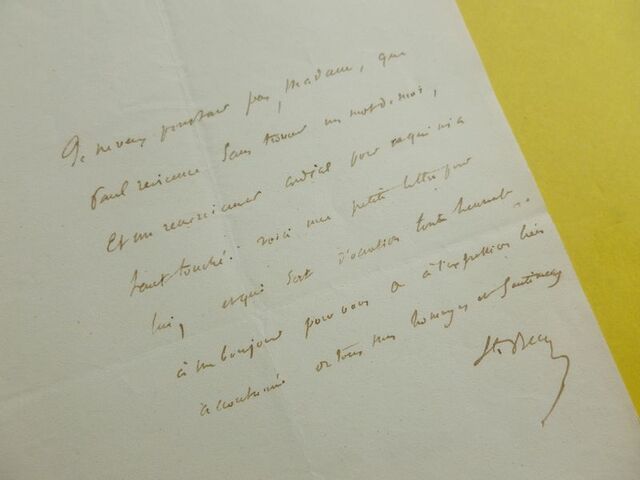 Je ne veux pourtant pas, Madame, que
Paul revienne sans trouver un mot de moi,
Et un remerciement cordial pour ce qui m'a
tant touché. voici une petite lettre pour
lui, et qui sert d'occasion toute heureuse
à un bonjour pour vous & à l'expression bien
accoutumée de tous mes hommages et sentimens